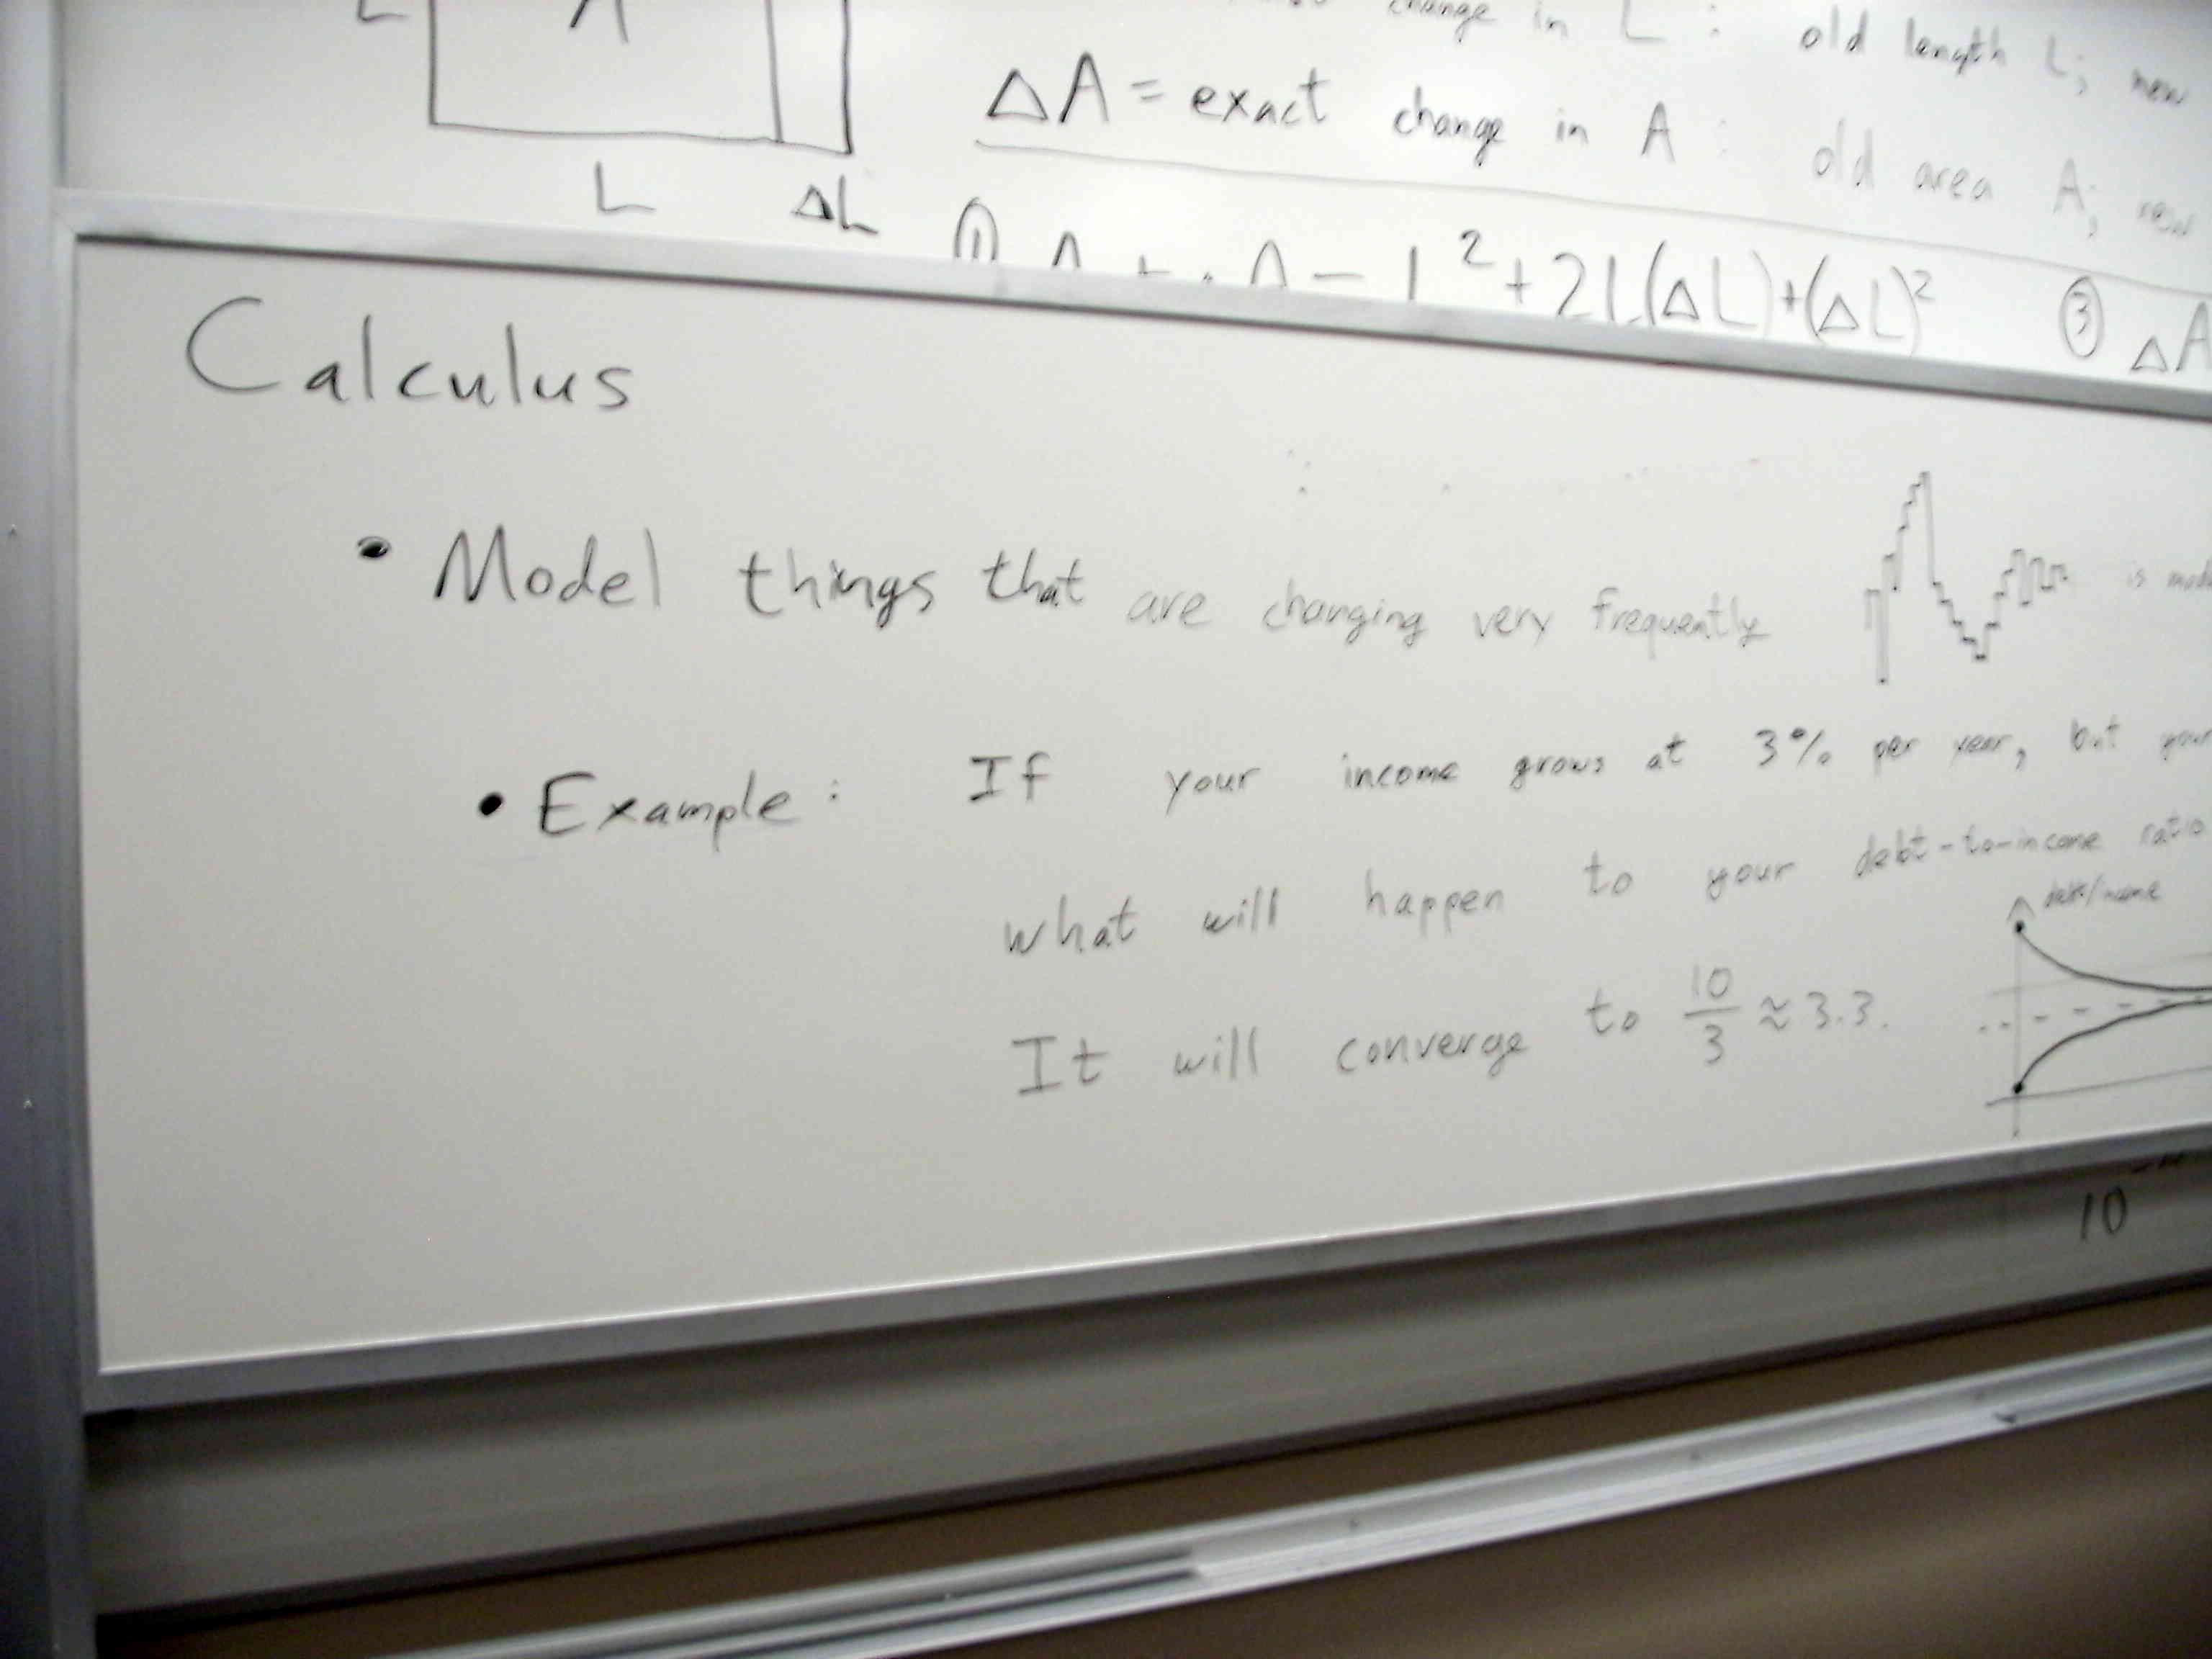 L A
change in L : old length L; new
ΔA = exact change in A : old area A; new
L ΔL
① A + ΔA = L² + 2L(ΔL) + (ΔL)² ③ ΔA
Calculus
• Model things that are changing very frequently is
• Example : If your income grows at 3% per year, but your
what will happen to your debt-to-income ratio
debt/income
It will converge to 10/3 ≈ 3.3.
10